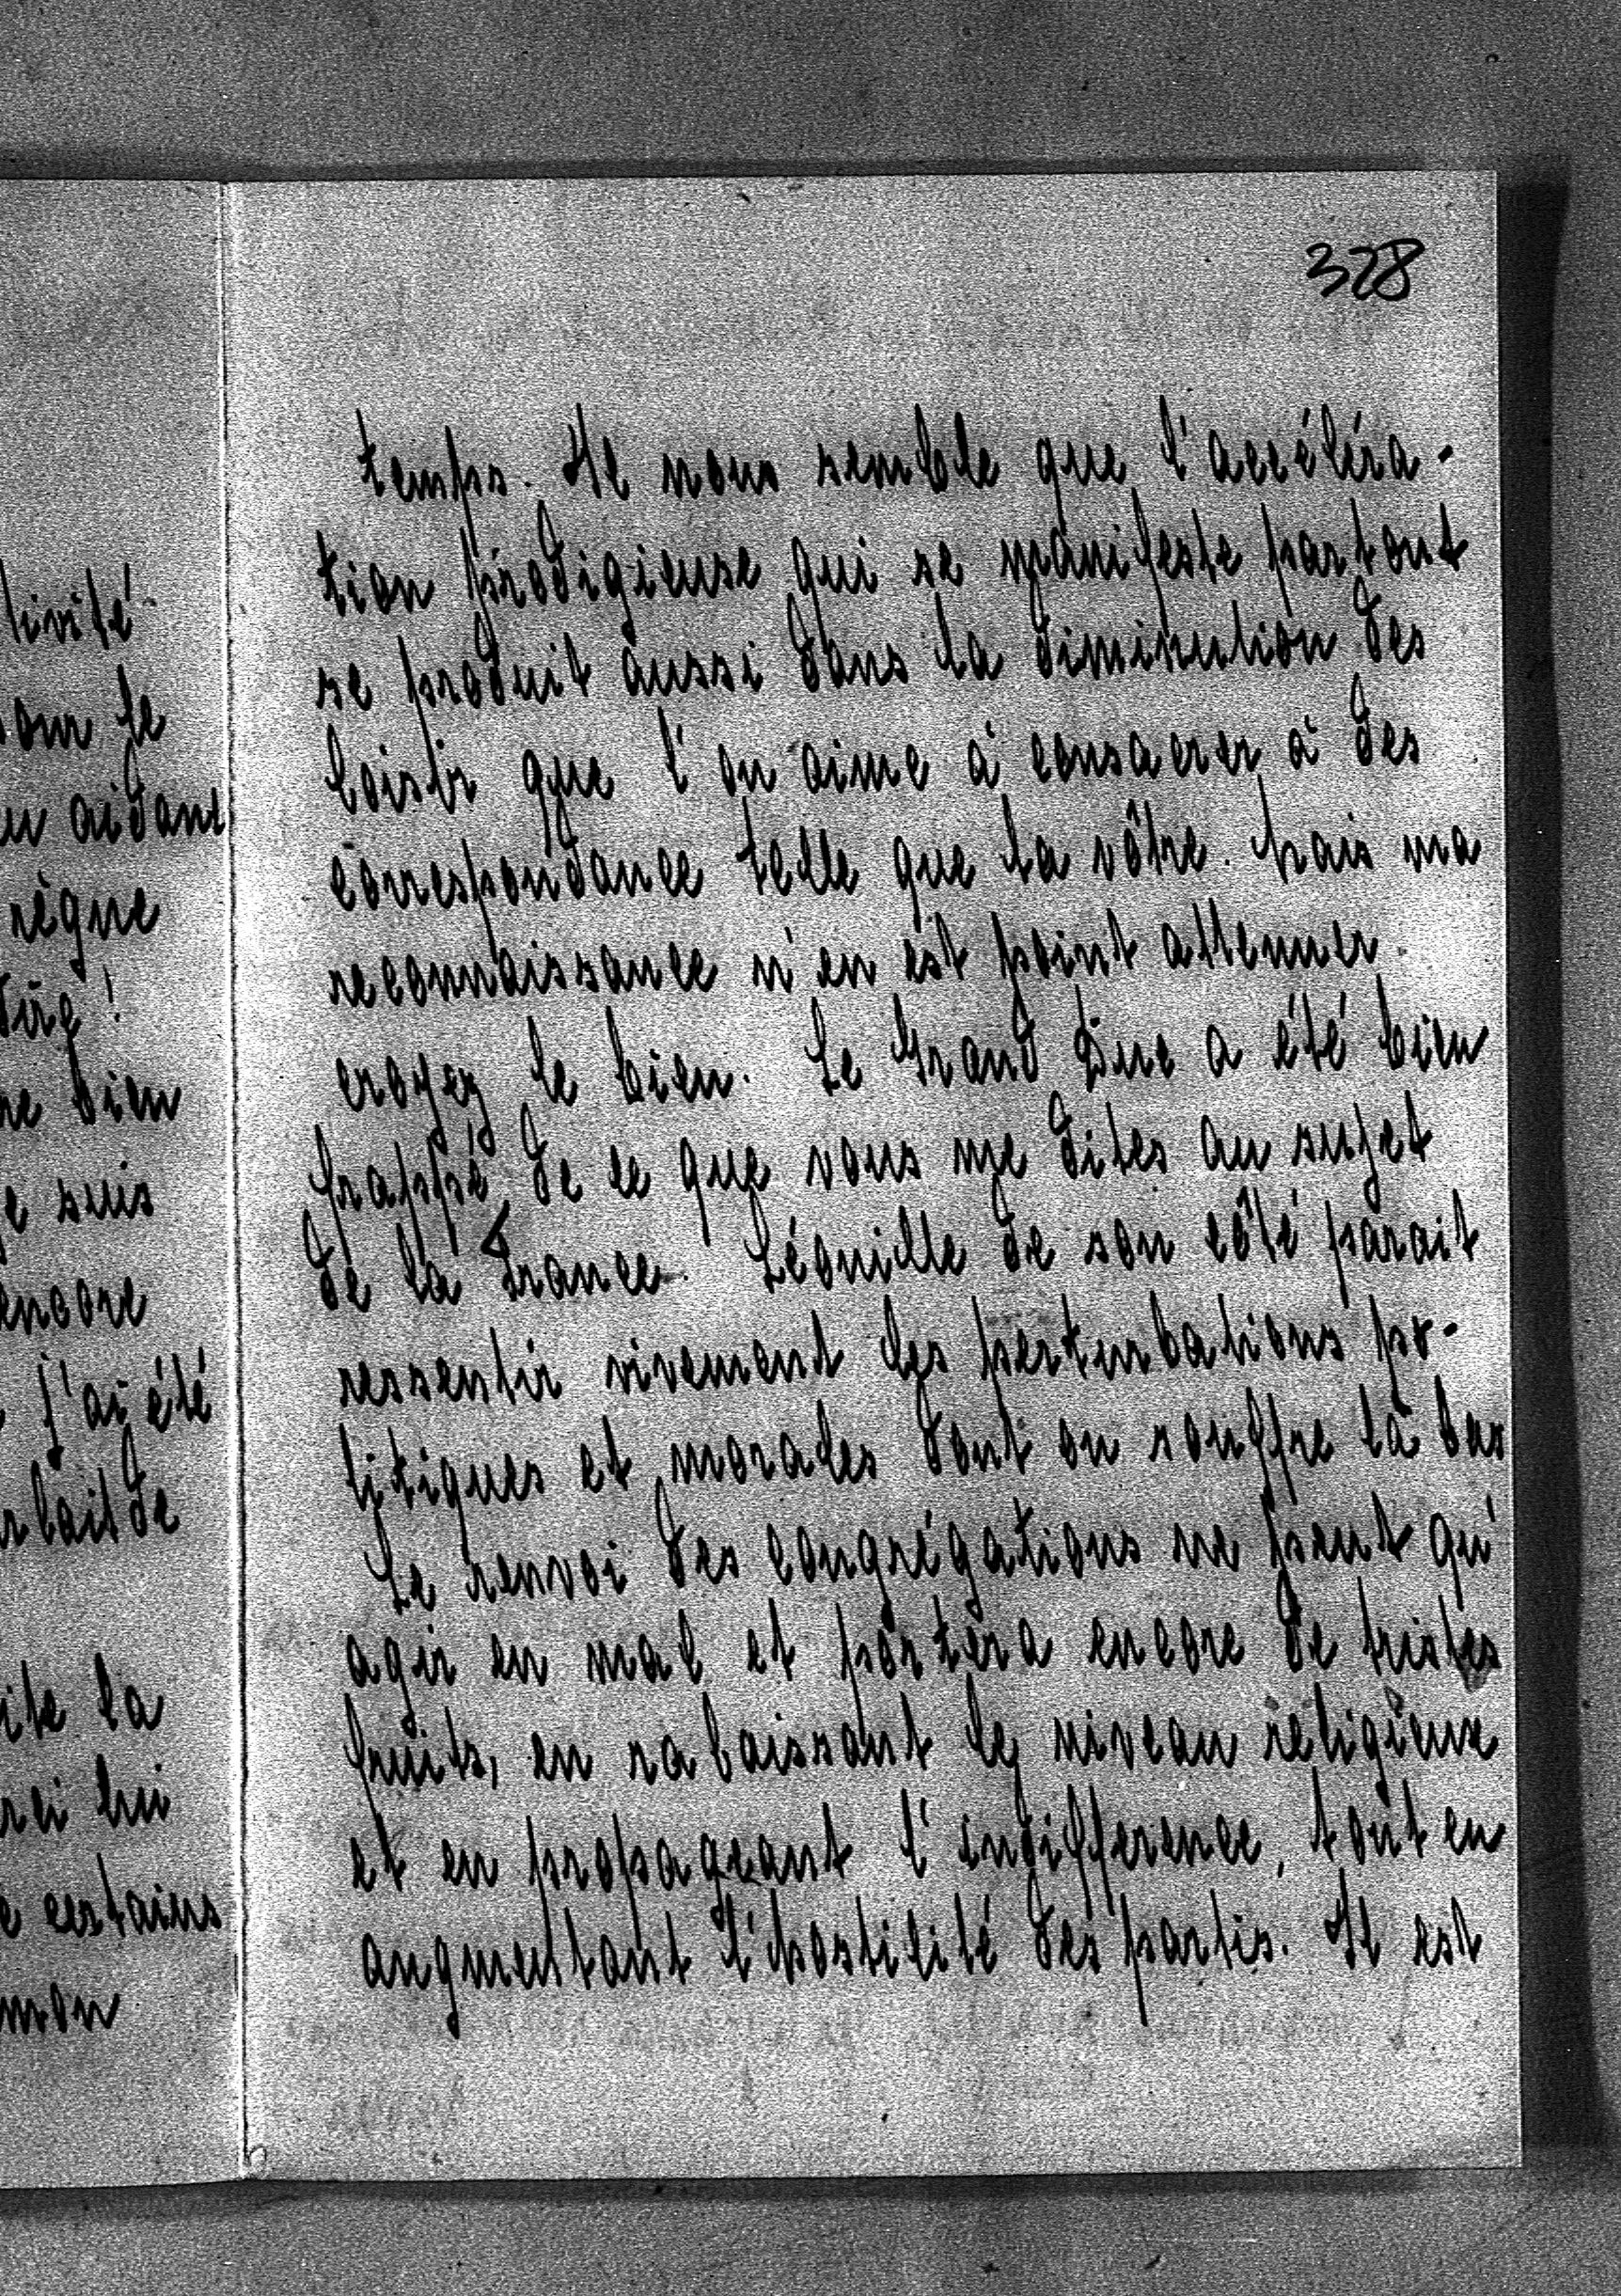 328
temps. Il nous semble que l'accéléra-
tion prodigieuse qui se manifeste partout
se produit aussi dans la diminution des
loisirs que l'on aime à consacrer à des
correspondance telle que la vôtre. Mais ma
reconnaissance n'en est point attenuer
croyez le bien. Le Grand Duc a été bien
frappé de ce que vous me dites au sujet
de la France. Léonille de son côté parait
ressentir vivement les perturbations po-
litiques et morales dont on souffre là bas
Le renvoi des congrégations ne peut qu'
agir en mal et portera encore de tristes
fruits, en rabaissant le niveau réligieux
et en propageant l'indifference, tout en
augmentant l'hostilité des partis. Il est
tivité
le
aidant
règne
dire!
bien
suis
encore
j'ai été
de
la
lui
certains
mon